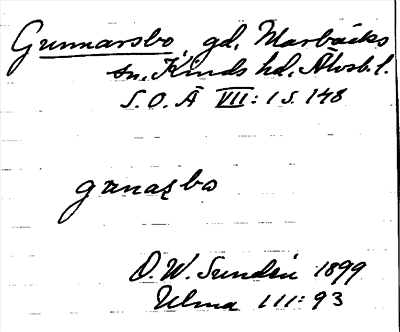 Gunnarsbo, gd, Marbäcks
sn, Kinds hd, Älvsb. l.
S. O. Ä VII: 1 S. 148
gunaʂbo
O. W. Sundén 1899
Ulma 111: 93